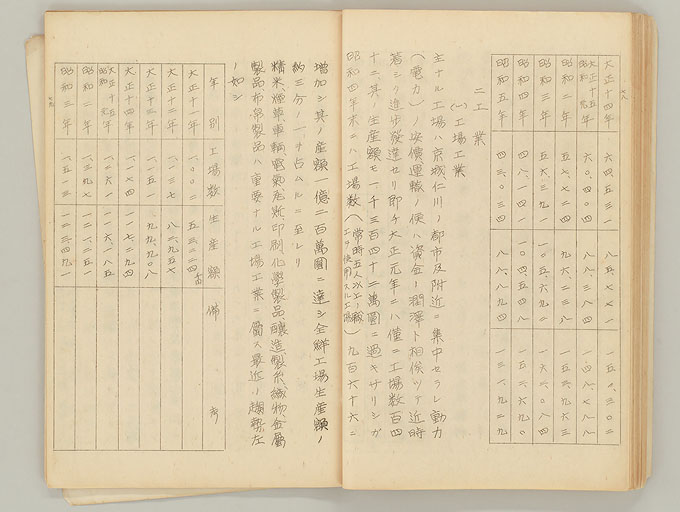 七八
大正十四年 六四、五三一 八五、七七一 一五〇、三〇二
大正十五年 昭和元年 六〇、四〇四 八八、三八四 一四八、七八八
昭和二年 五七、七二四 九六、二三八 一五三、九六二
昭和三年 五六、三九一 一〇五、六九〇 一六二、〇八一
昭和四年 四八、一四一 一〇四、五四九 一五二、六九〇
昭和五年 四三、〇三四 八八、八九四 一三一、九二八
二 工業
(一) 工場工業
主ナル工場ハ京城仁川ノ都市及附近ニ集中セラレ動力
(電力)ノ安價運輸ノ便ハ資金ノ潤澤ト相俟ツテ近時
著シク進步發達セリ卽チ大正元年ニハ僅ニ工場数百四
十二、其ノ生産額モ一千三百四十二萬圓ニ過キザリシガ
昭和四年末ニハ工場数(常時五人以上ノ職工ヲ使用スル工場)九百六十六ニ
增加シ其ノ産額一億二百萬圓ニ達シ全鮮工場生産額ノ
約三分ノ一ヲ占ムルニ至レリ
精米、煙草、車輛、電氣、瓦斯、印刷、化學製品、釀造、製糸、織物、金屬
製品、布帛製品ハ重要ナル工場工業ニ屬ス最近ノ趨勢左
ノ如シ
七九
年別 工場数 生産額 備考
大正十一年 一、〇〇二
大正十二年 一、一三七 八二、九五七
大正十三年 一、一五一 九九、九〇八
大正十四年 一、一七四 一一七、二九四
大正十五年 昭和元年 一、〇六一 一一六、一八五
昭和二年 一、三九七 一一二、一五一
昭和三年 一、五一三 一二三、四九一